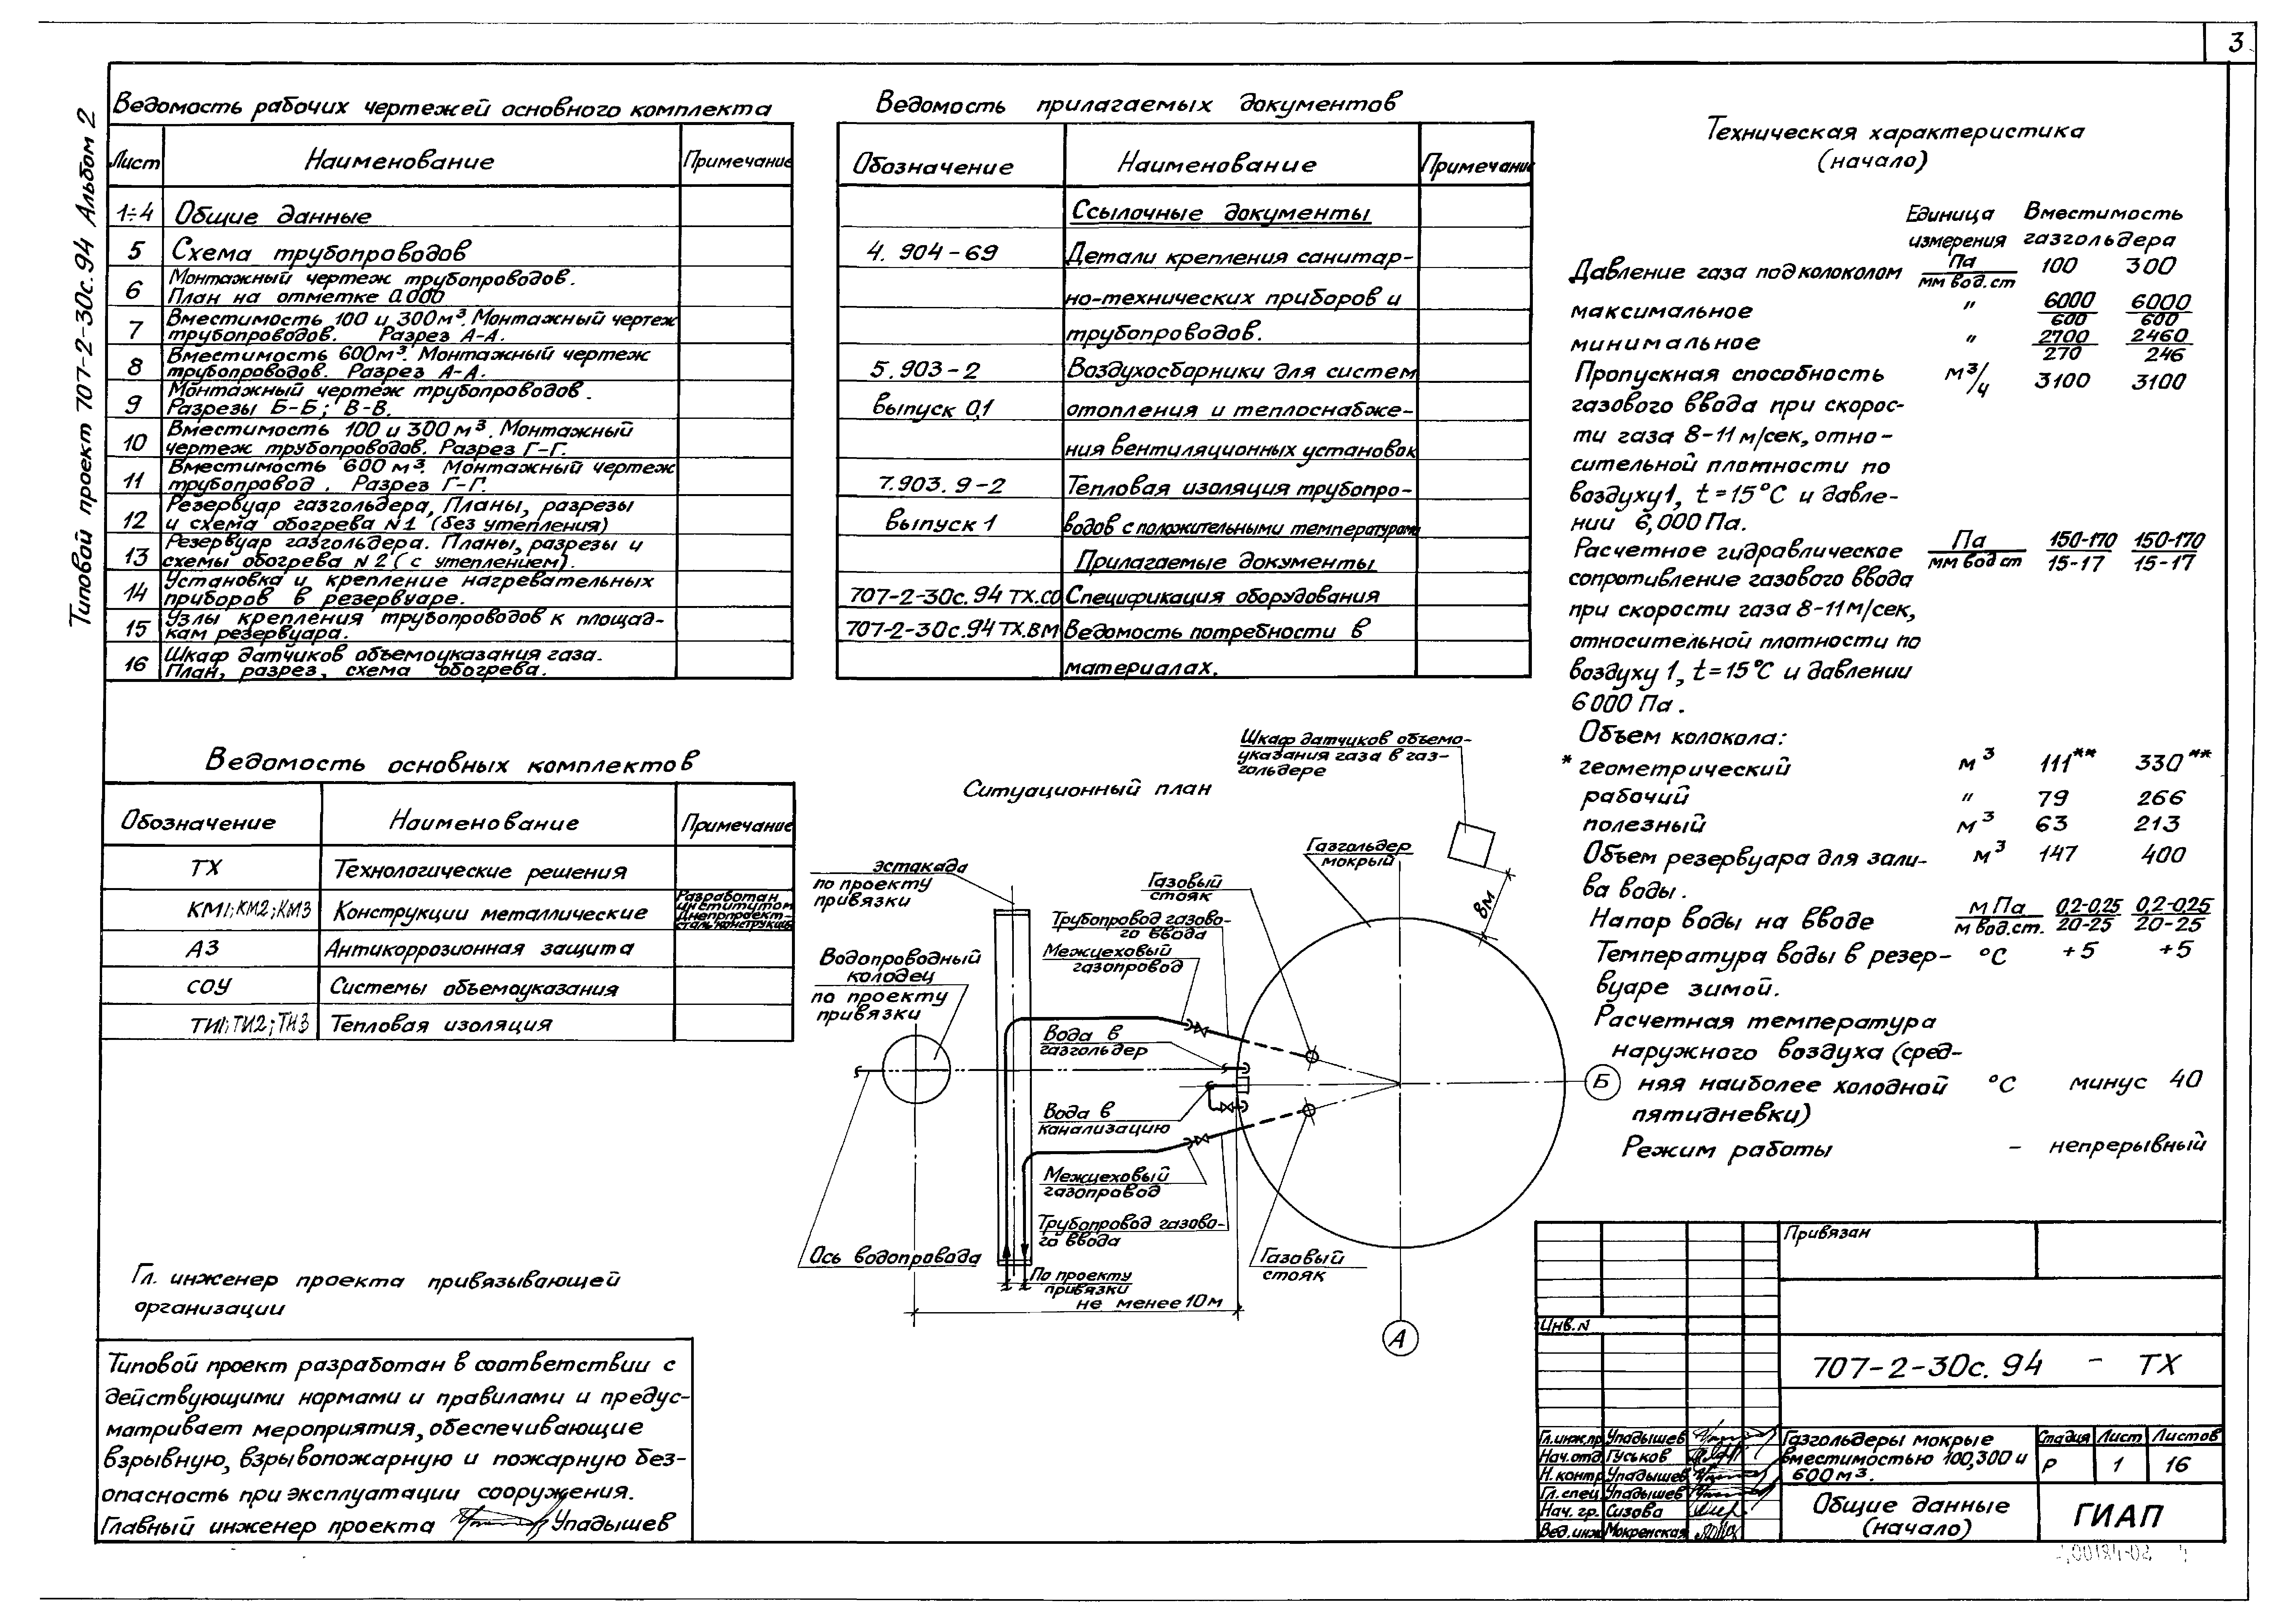 3
Типовой проект 707-2-30с.94 Альбом 2
Ведомость рабочих чертежей основного комплекта
Лист Наименование Примечание
1÷4 Общие данные
5 Схема трубопроводов
6 Монтажный чертеж трубопроводов.
План на отметке 0.000
7 Вместимость 100 и 300м³. Монтажный чертеж
трубопроводов. Разрез А-А.
8 Вместимость 600м³. Монтажный чертеж
трубопроводов. Разрез А-А.
9 Монтажный чертеж трубопроводов.
Разрезы Б-Б; В-В.
10 Вместимость 100 и 300 м³. Монтажный
чертеж трубопроводов. Разрез Г-Г.
11 Вместимость 600 м³. Монтажный чертеж
трубопровод. Разрез Г-Г.
12 Резервуар газгольдера, Планы, разрезы
и схема обогрева N1 (без утепления)
13 Резервуар газгольдера. Планы, разрезы и
схемы обогрева N2 (с утеплением).
14 Установка и крепление нагревательных
приборов в резервуаре.
15 Узлы крепления трубопроводов к площад-
кам резервуара.
16 Шкаф датчиков объемоуказания газа.
План, разрез, схема обогрева.
Ведомость прилагаемых документов
Обозначение Наименование Примечание
Ссылочные документы
4. 904-69 Детали крепления санитар-
но-технических приборов и
трубопроводов.
5.903-2 Воздухосборники для систем
выпуск 0,1 отопления и теплоснабже-
ния вентиляционных установок
7.903. 9-2 Тепловая изоляция трубопро-
выпуск 1 водов с положительными температурами
Прилагаемые документы
707-2-30с.94 ТХ.СО Спецификация оборудования
707-2-30с.94 ТХ.ВМ Ведомость потребности в
материалах.
Техническая характеристика
(начало)
Единица Вместимость
измерения газгольдера
Давление газа под колоколом Па/мм вод.ст 100 300
максимальное " 6000/600 6000/600
минимальное " 2700/270 2460/246
Пропускная способность м³/ч 3100 3100
газового ввода при скорос-
ти газа 8-11 м/сек, отно-
сительной плотности по
воздуху 1, t=15°С и давле-
нии 6,000 Па.
Расчетное гидравлическое Па/мм вод ст 150-170/15-17 150-170/15-17
сопротивление газового ввода
при скорости газа 8-11 м/сек,
относительной плотности по
воздуху 1, t=15°С и давлении
6000 Па.
Объем колокола:
* геометрический м³ 111** 330**
рабочий " 79 266
полезный м³ 63 213
Объем резервуара для зали- м³ 147 400
ва воды.
Напор воды на вводе мПа/м вод.ст. 0,2-0,25/20-25 0,2-0,25/20-25
Температура воды в резер- °С +5 +5
вуаре зимой.
Расчетная температура
наружного воздуха (сред-
няя наиболее холодной °С минус 40
пятидневки)
Режим работы - непрерывный
Ведомость основных комплектов
Обозначение Наименование Примечание
ТХ Технологические решения
КМ1; КМ2; КМ3 Конструкции металлические Разработан
институтом
Днепрпроект-
стальконструкция
АЗ Антикоррозионная защита
СОУ Системы объемоуказания
ТИ1; ТИ2; ТИ3 Тепловая изоляция
Ситуационный план
Шкаф датчиков объемо-
указания газа в газ-
гольдере
Газгольдер
мокрый
8м
эстакада
по проекту
привязки
Газовый
стояк
Трубопровод газово-
го ввода
Межцеховый
газопровод
Водопроводный
колодец
по проекту
привязки
Вода в
газгольдер
Б
Вода в
канализацию
Межцеховый
газопровод
Трубопровод газово-
го ввода
Ось водопровода
Газовый
стояк
По проекту
привязки
не менее 10м
А
Гл. инженер проекта привязывающей
организации
Типовой проект разработан в соответствии с
действующими нормами и правилами и предус-
матривает мероприятия, обеспечивающие
взрывную, взрывопожарную и пожарную без-
опасность при эксплуатации сооружения.
Главный инженер проекта Упадышев
Привязан
Инв.N
707-2-30с. 94 - ТХ
Гл.инж.пр Упадышев
Нач.отд. Гуськов
Н. контр Упадышев
Гл. спец Упадышев
Нач. гр. Сизова
Вед. инж Мокренская
Газгольдеры мокрые
вместимостью 100,300 и
600м³.
Стадия Лист Листов
Р 1 16
Общие данные
(начало)
ГИАП